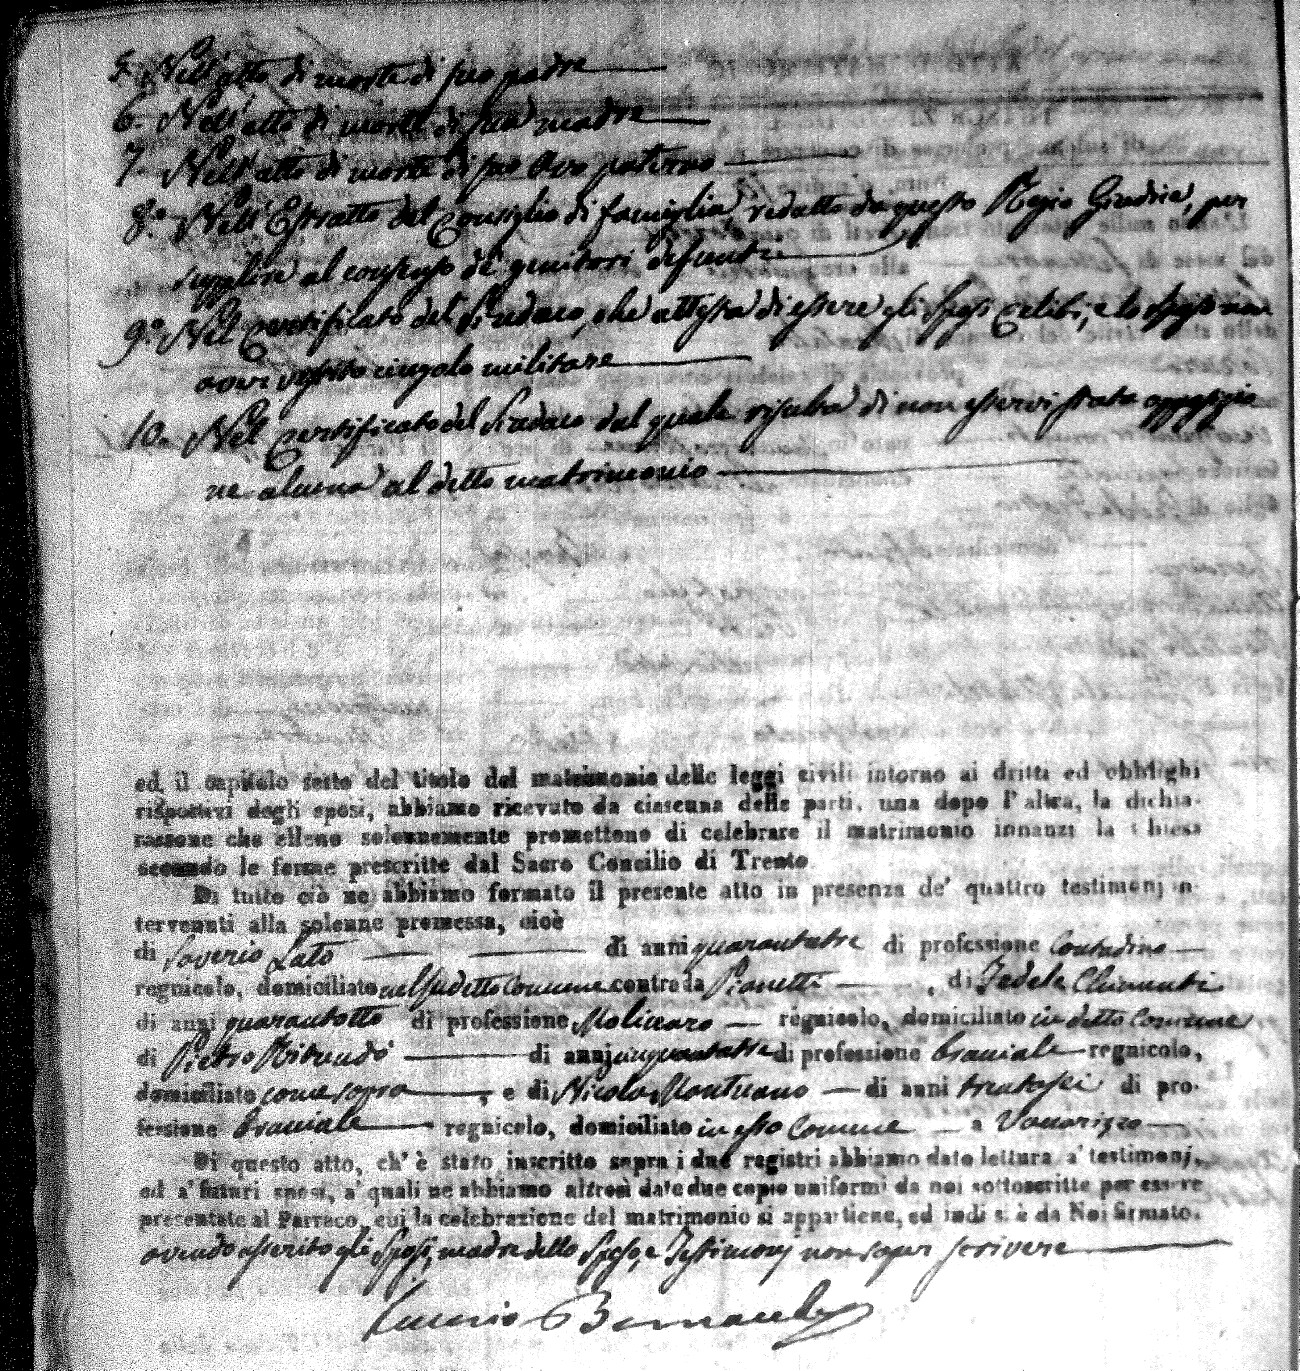 5. Nell'atto di morte di suo padre
6. Nell'atto di morte di sua madre
7. Nell'atto di morte di suo Avo paterno
8.° Nell'Estratto del Consiglio di famiglia, redatto da questo Regio Giudice, per
supplire al consenso de' genitori defunti
9.° Nel Certificato del Sindaco, che attesta di essere gli Sposi celibi, e lo sposo non
aver vestito cingolo militare
10. Nel Certificato del Sindaco dal quale risulta di non esservi stata opposizio
ne alcuna al detto matrimonio
ed il capitolo sesto del titolo del matrimonio delle leggi civili intorno ai dritti ed obblighi
rispettivi degli sposi, abbiamo ricevuto da ciascuna delle parti, una dopo l'altra, la dichia-
razione che elleno solennemente promettono di celebrare il matrimonio innanzi la Chiesa
secondo le forme prescritte dal Sacro Concilio di Trento.
Di tutto ciò ne abbiamo formato il presente atto in presenza de' quattro testimonj in-
tervenuti alla solenne promessa, cioè
di Saverio Lato di anni quarantatre di professione Contadino
regnicolo, domiciliato nel sudetto Comune contrada Pianetti, di Fedele Chimenti
di anni quarantotto di professione Molinaro regnicolo, domiciliato in detto Comune
di Pietro di anni cinquantatre di professione braciale regnicolo,
domiciliato come sopra, e di Nicola Mantuano di anni trentasei di pro-
fessione braciale regnicolo, domiciliato in esso Comune a
Di questo atto, ch'è stato inscritto sopra i due registri abbiamo dato lettura a' testimonj,
ed a' futuri sposi, a' quali ne abbiamo altresì date due copie uniformi da noi sottoscritte per essere
presentate al Parroco, cui la celebrazione del matrimonio si appartiene, ed indi si è da Noi firmato.
avendo asserito gli Sposi, madre dello Sposo, e Testimonj non saper scrivere